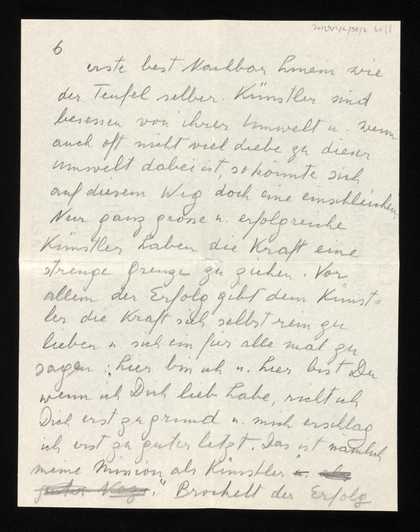 6
erste best Nachbar hinein wie
der Teufel selber. Künstler sind
besessen von ihrer Umwelt u. wenn
auch oft nicht viel Liebe zu dieser
Umwelt dabei ist, so könnte sich
auf diesem Weg doch eine einschleichen
Nur ganz grosse u. erfolgreiche
Künstler haben die Kraft eine
strenge Grenze zu ziehen. Vor
allem der Erfolg gibt dem Künst-
ler die Kraft sich selbst rein zu
lieben u sich ein für alle mal zu
sagen: hier bin ich u. hier bist Du
wenn ich Dich lieb habe, richt ich
Dich erst zu grund u. mich erschlag
ich erst zu guter letzt. Das ist nämlich
meine Mission als Künstler u.
." Bröchelt der Erfolg